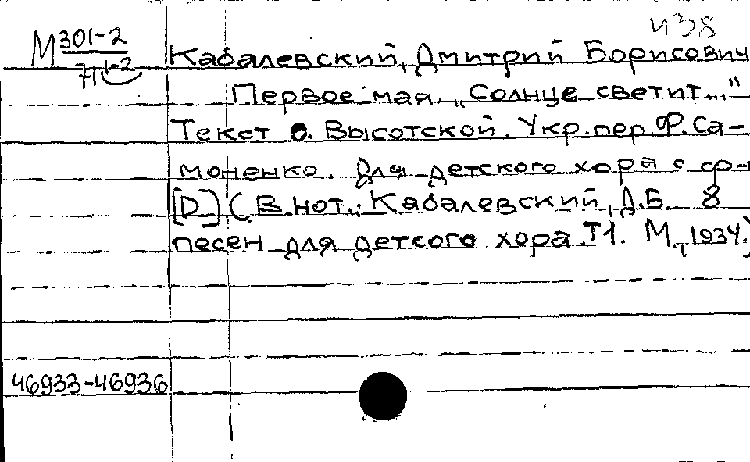 438
М 301-2
Кабалевский, Дмитрий Борисович
Первое мая. „Солнце светит..."
Текст О. Высотской. Укр. пер. Ф. Са-
моненко. Для детского хора с ф-п
[D] (В нот.: Кабалевский, Д.Б. 8
песен для детсого хора. Т1. М., 1934.)
46933-46936